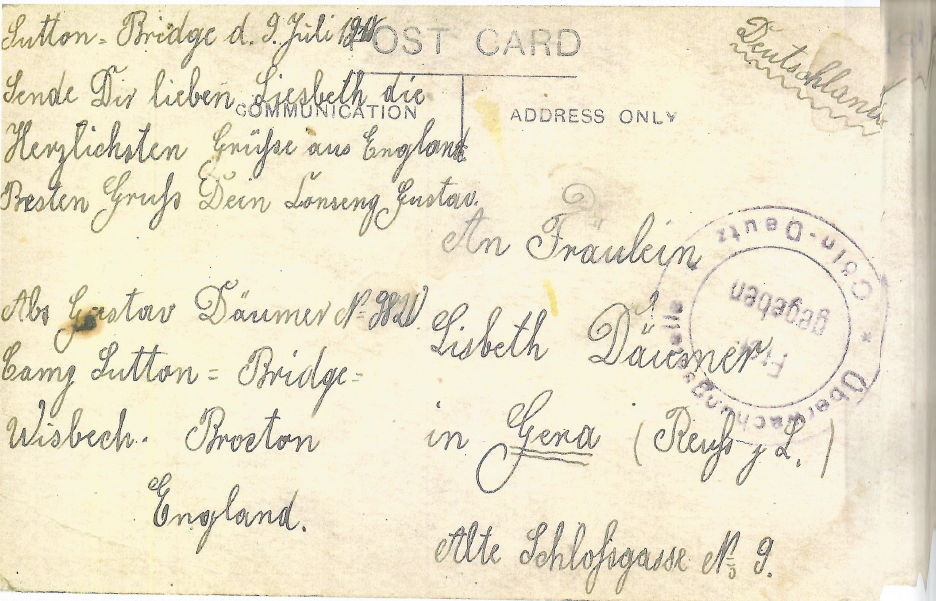 POST CARD
COMMUNICATION
ADDRESS ONLY
Sutton = Bridge d. 9. Juli
Sende Dir lieben Liesbeth die
Herzlichsten Grüße aus England
Besten Gruß Dein Gustav.
Abs Gustav Däumer No
Camp Sutton = Bridge =
Wisbech. Brocton
England.
Deutschland
An Fräulein
Lisbeth Däumer
in Gera (Reuß j. L.)
Alte Schloßgasse No 9.
Überwachungsstelle * Cöln-Deutz
Frei
gegeben